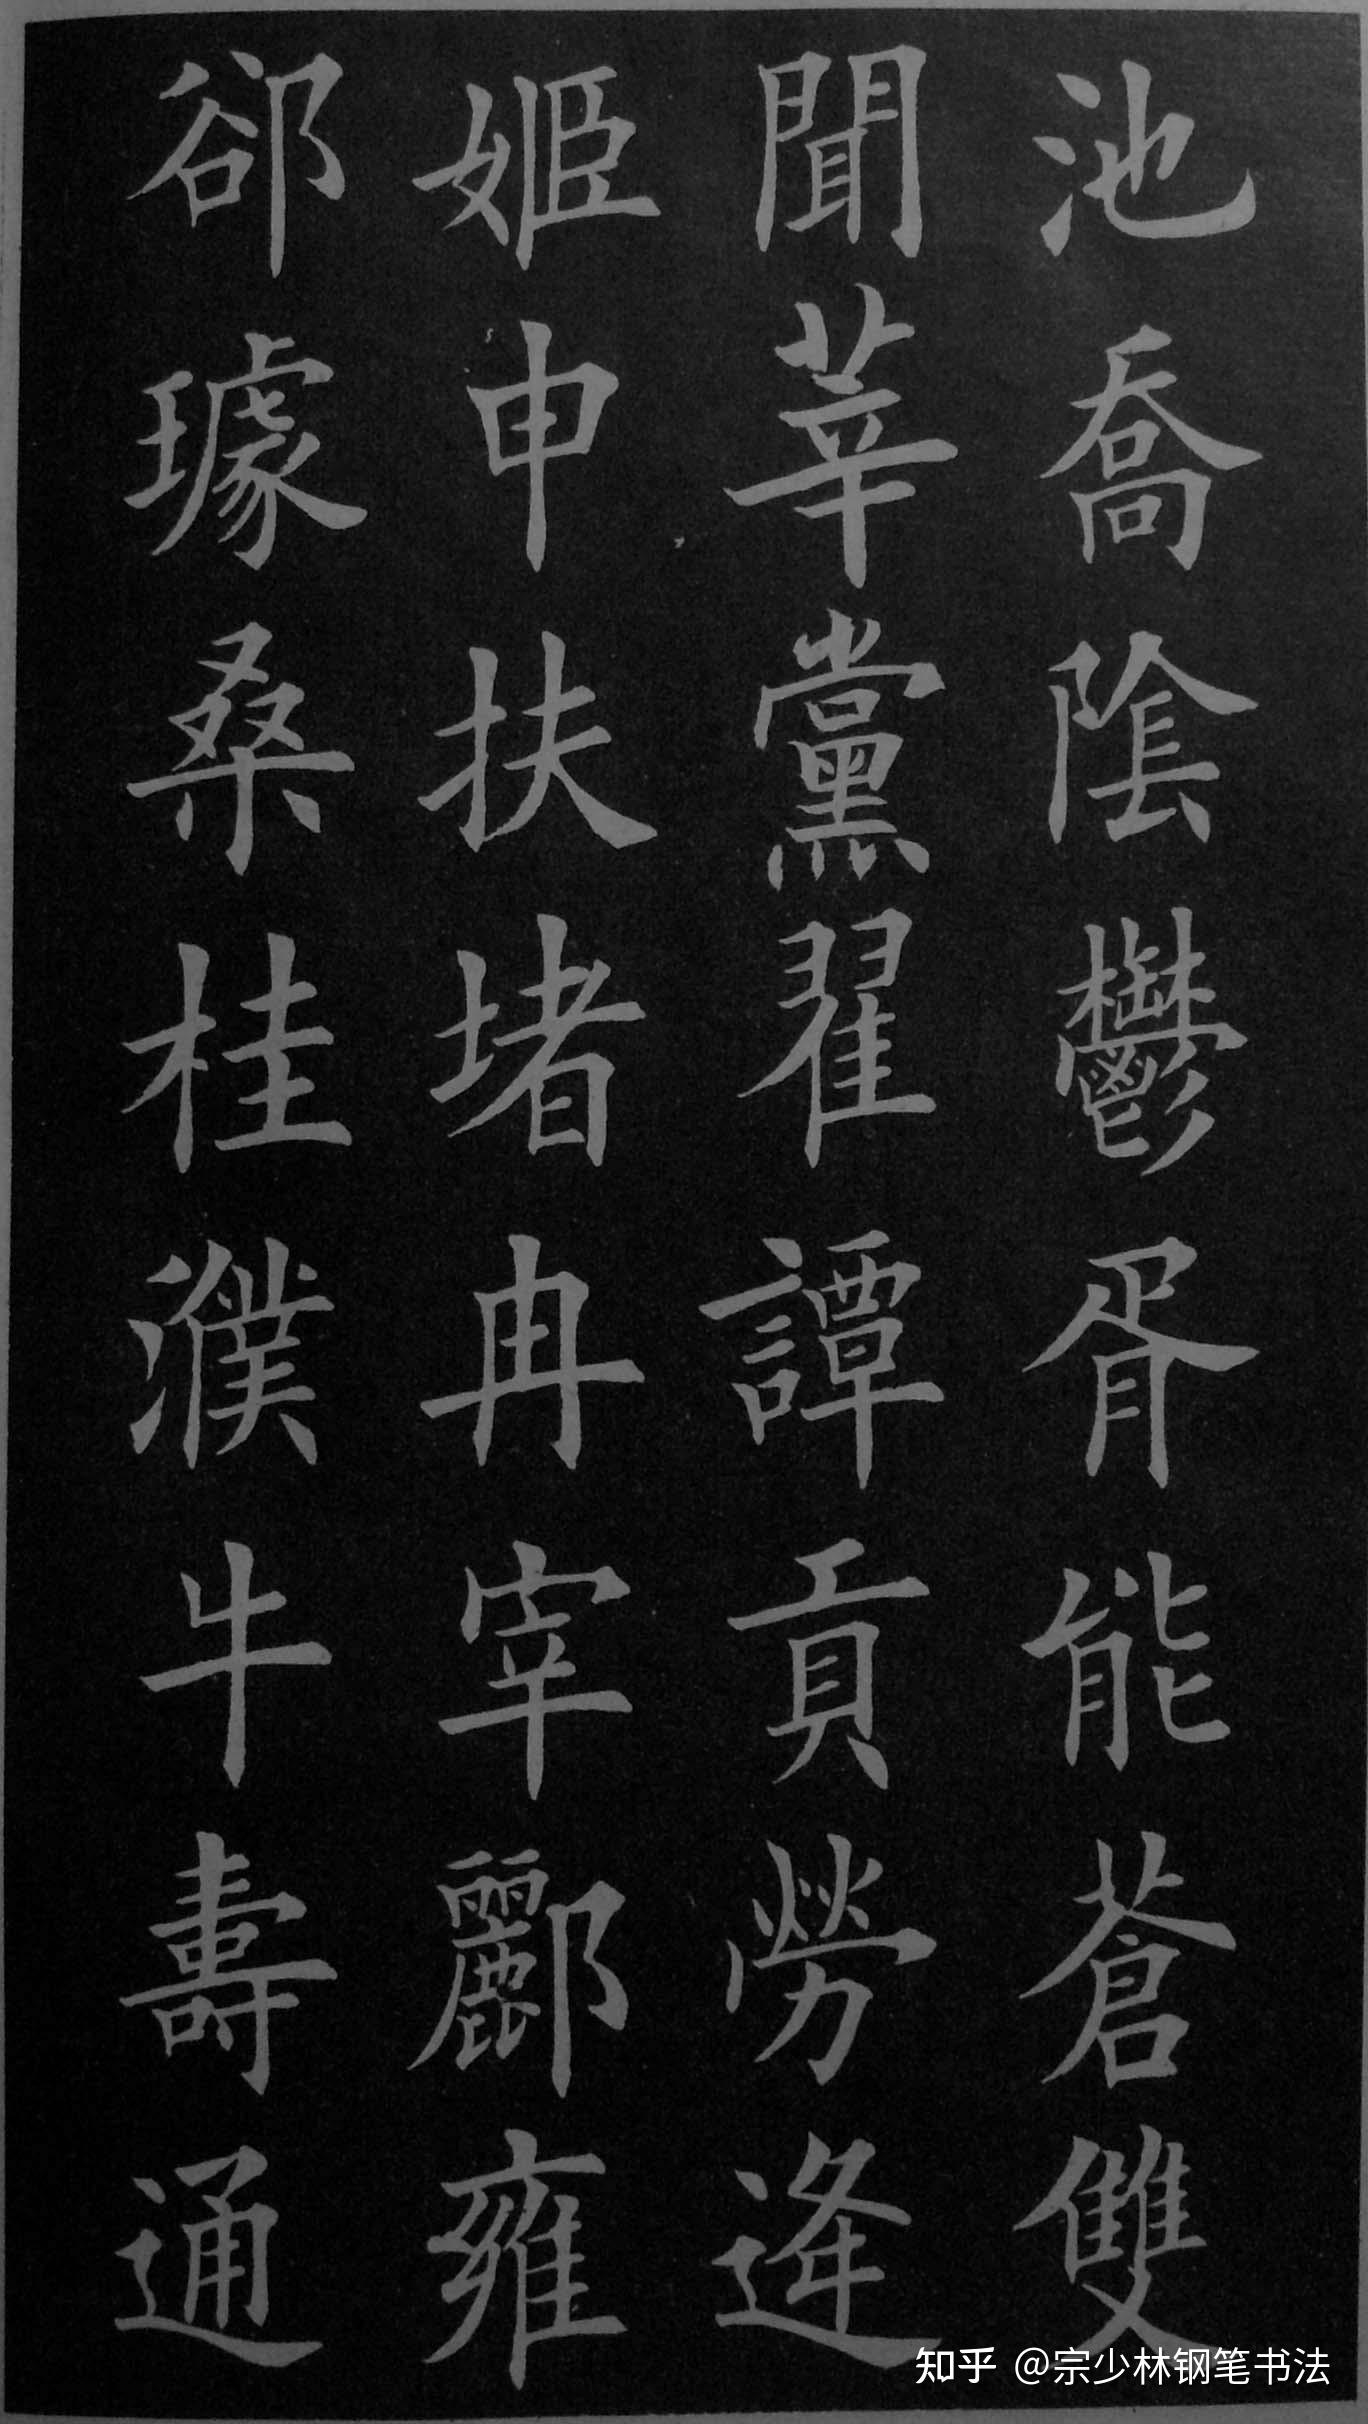 池喬陰鬱胥能蒼雙
聞莘黨翟譚貢勞逄
姬申扶堵冉宰酈雍
郤璩桑桂濮牛壽通
知乎 @宗少林钢笔书法